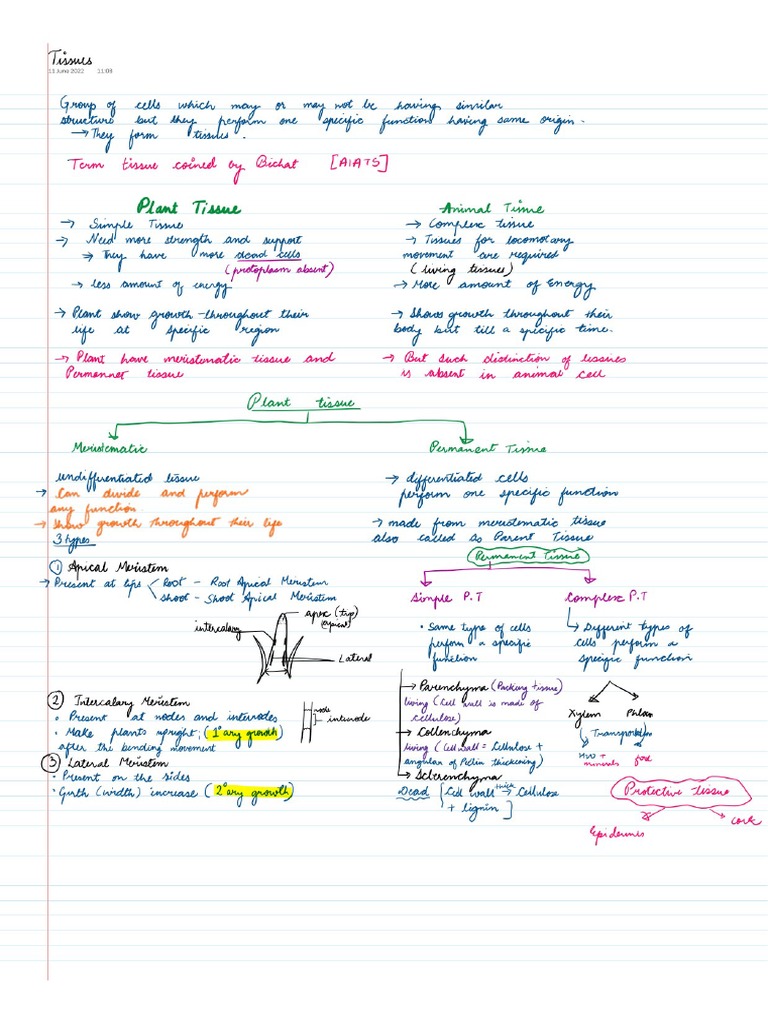 Tissues
13 June 2022 11:08
Group of cells which may or may not be having similar
structure but they perform one specific function having same origin.
→ They form tissues.
Term tissue coined by Bichat [AIATS]
Plant Tissue
→ Simple Tissue
→ Need more strength and support
→ They have more dead cells
(protoplasm absent)
→ less amount of energy
→ Plant show growth throughout their
life at specific region
→ Plant have meristematic tissue and
Permannet tissue
Animal Tissue
→ Complex tissue
→ Tissues for locomotary
movement are required
(living tissues)
→ More amount of Energy
→ Shows growth throughout their
body but till a specific time.
→ But such distinction of tissues
is absent in animal cell
Plant tissue
Meristematic
undifferentiated tissue
→ Can divide and perform
any function
→ Show growth throughout their life
3 types
① Apical Meristem
→ Present at tips
Root - Root Apical Meristem
Shoot - Shoot Apical Meristem
intercalary
apex (tip)
(apical)
Lateral
② Intercalary Meristem
• Present at nodes and internodes
• Make plants upright; (1°ary growth)
after the bending movement
node
internode
③ Lateral Meristem
• Present on the sides
• Girth (width) increase (2°ary growth)
Permanent Tissue
→ differentiated cells
perform one specific function
→ made from meristematic tissue
also called as Parent Tissue
Permanent Tissue
Simple P.T
• Same type of cells
perform a specific
function
→ Parenchyma (Packing tissue)
living (Cell wall is made of
cellulose)
→ Collenchyma
living (Cell wall = Cellulose +
angular of Pectin thickening)
→ Sclerenchyma
• Dead [Cell wall thick → Cellulose
+ lignin]
Complex P.T
→ Different types of
cells perform a
specific function
Xylem Phloem
(Transportation
H2O +
minerals
Protective tissue
Epidermis
Cork